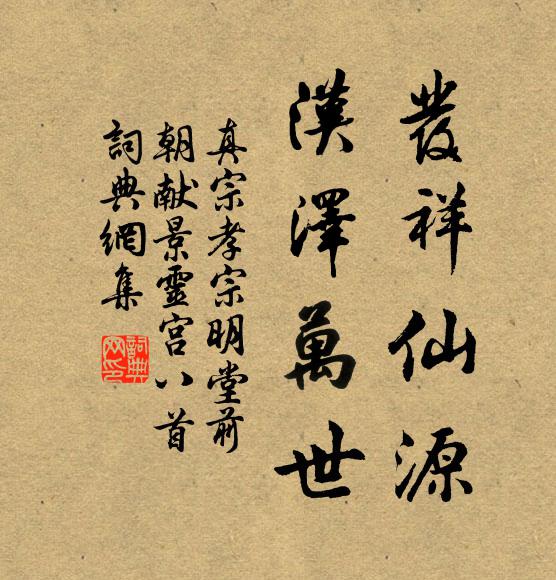 發祥仙源
漢澤萬世
真宗孝宗明堂前
朝献景靈宮八首
詞典網集
詞典
网印